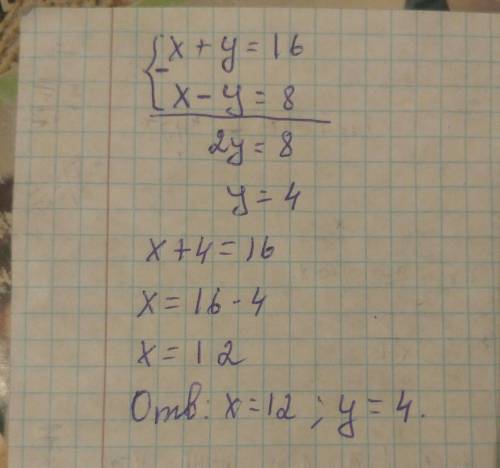 x + y = 16
x - y = 8
2y = 8
y = 4
x + 4 = 16
x = 16 - 4
x = 12
Отв: x = 12 ; y = 4.